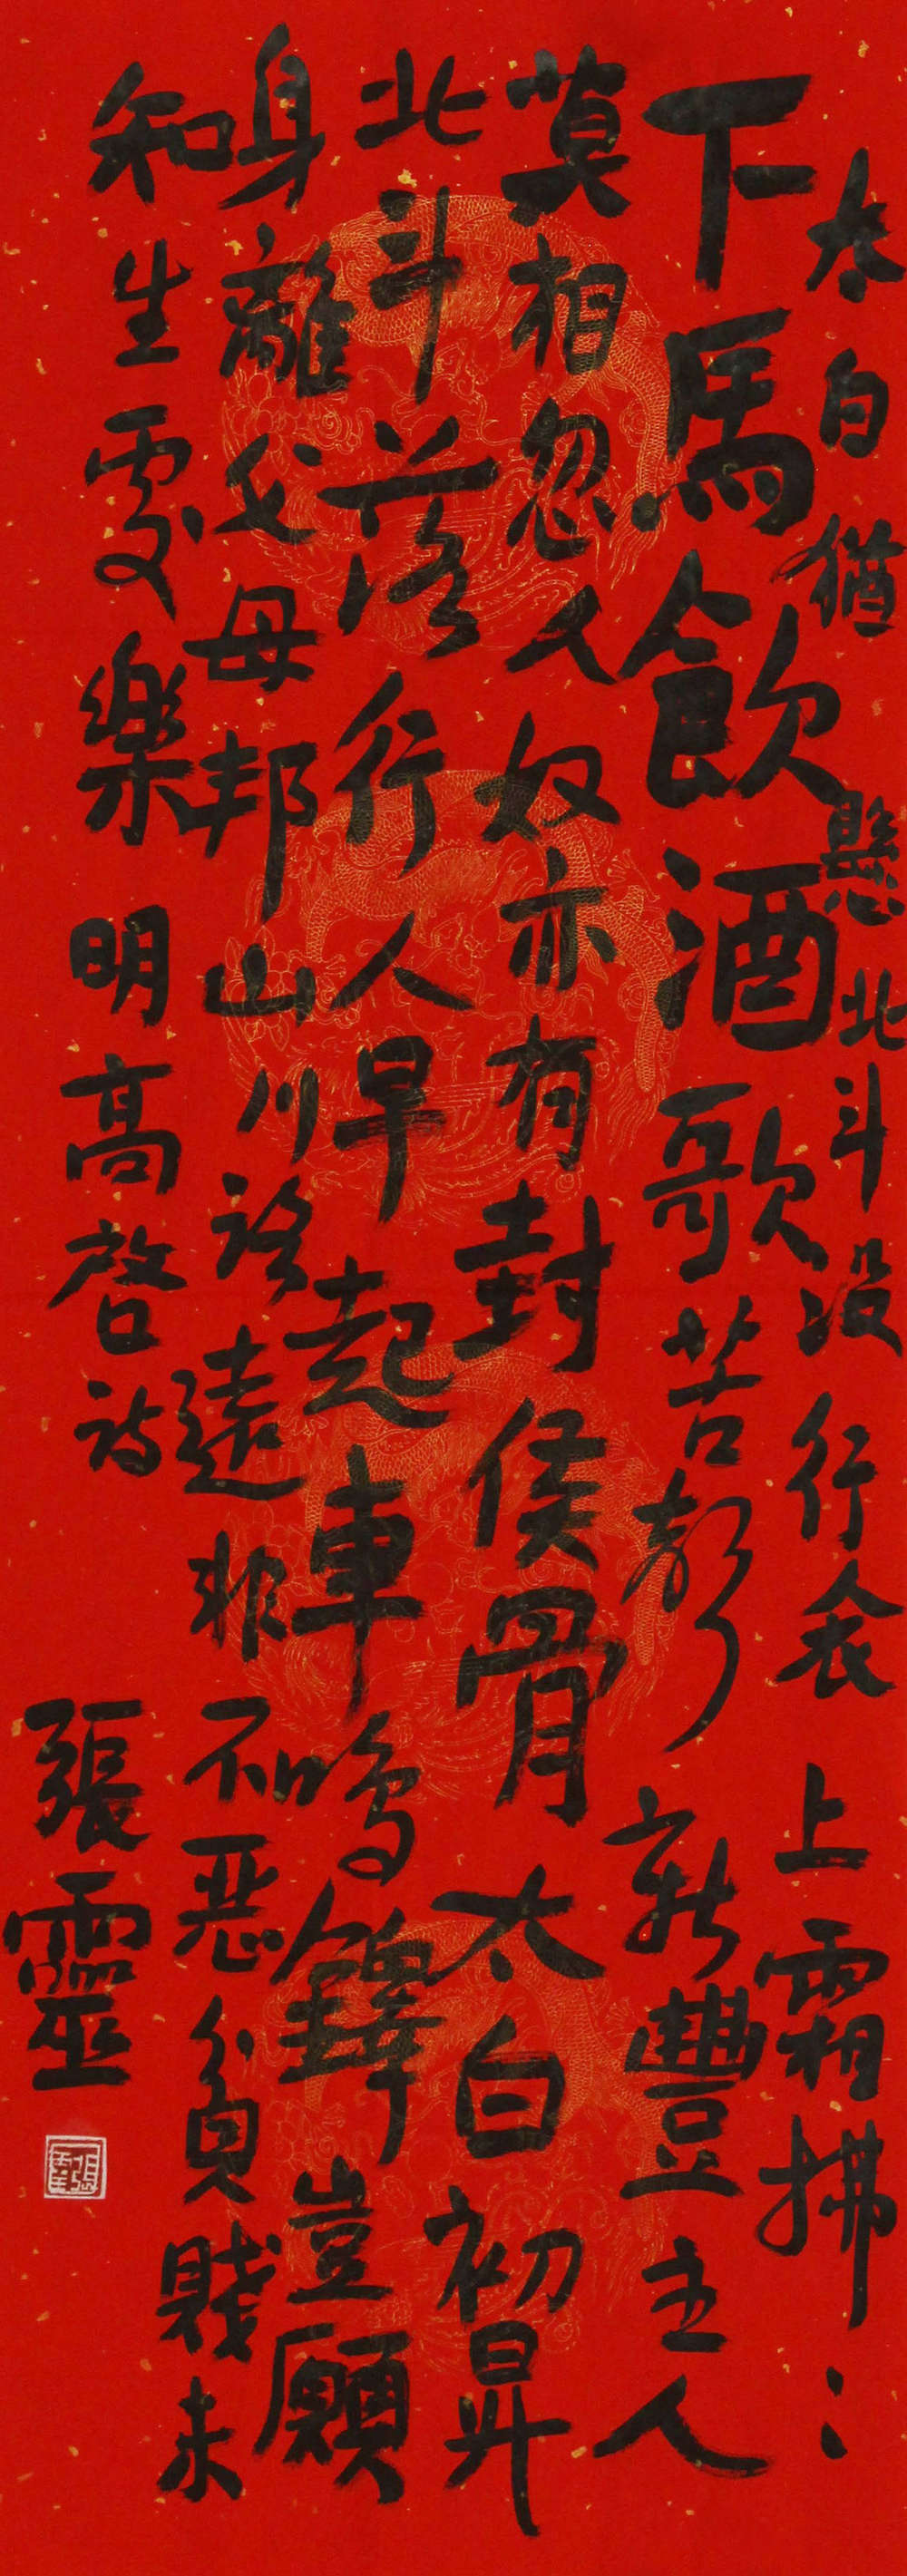 太白猶懸北斗没行衾上霜拂〻
下馬飲酒歌苦聲新豐主人
莫相忽人奴亦有封侯骨太白初昇
北斗落行人早起車鳴鐸豈願
身離父母邦山川路遠非不惡貧賤未
知生處樂 明高啓詩
張靈
張靈